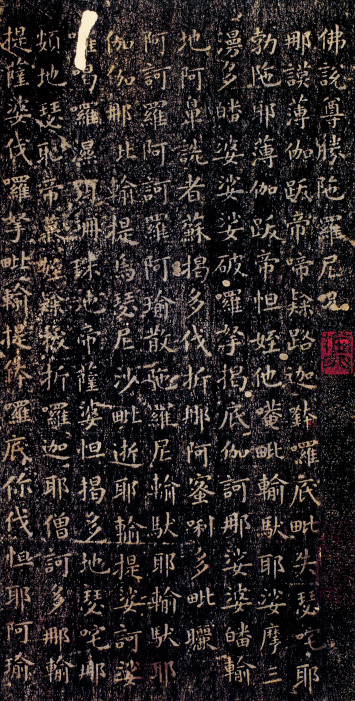 佛說尊勝陀羅尼咒
那謨薄伽跋帝啼隸路迦鉢囉底毗失瑟咤耶
勃陁耶薄伽跋帝怛姪他唵毗輸馱耶娑摩三
漫多皤婆娑娑破囉拏揭底伽訶那娑婆皤輸
地阿鼻詵者蘇揭多伐折那阿蜜唎多毗曬
阿訶羅阿訶羅阿瑜散陁羅尼輸馱耶輸馱耶
伽伽那毗輸提烏瑟尼沙毗逝耶輸提娑訶娑
喝羅濕珊珠地帝薩婆怛揭多地瑟咤那
頞地瑟耻帝慕姪隸跋折羅迦耶僧訶多那輸
提薩婆伐羅拏毗輸提鉢羅底你伐怛耶阿瑜